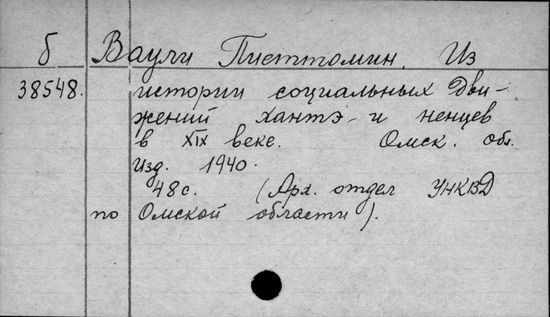 б Ваули Пиеттомин. Из
38548. истории социальных дви-
жений хантэ и ненцев
в XIX веке. Омск. обл.
изд. 1940.
48 с. (Арх. отдел УНКВД
по Омской области).